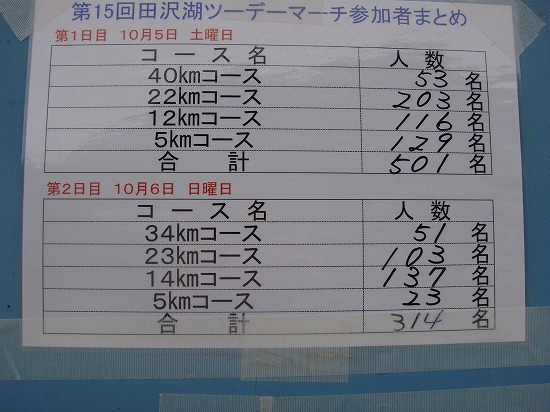 第15回田沢湖ツーデーマーチ参加者まとめ
第1日目 10月5日 土曜日
コース名 人数
40kmコース 53名
22kmコース 203名
12kmコース 116名
5kmコース 129名
合計 501名
第2日目 10月6日 日曜日
コース名 人数
34kmコース 51名
23kmコース 103名
14kmコース 137名
5kmコース 23名
合計 314名